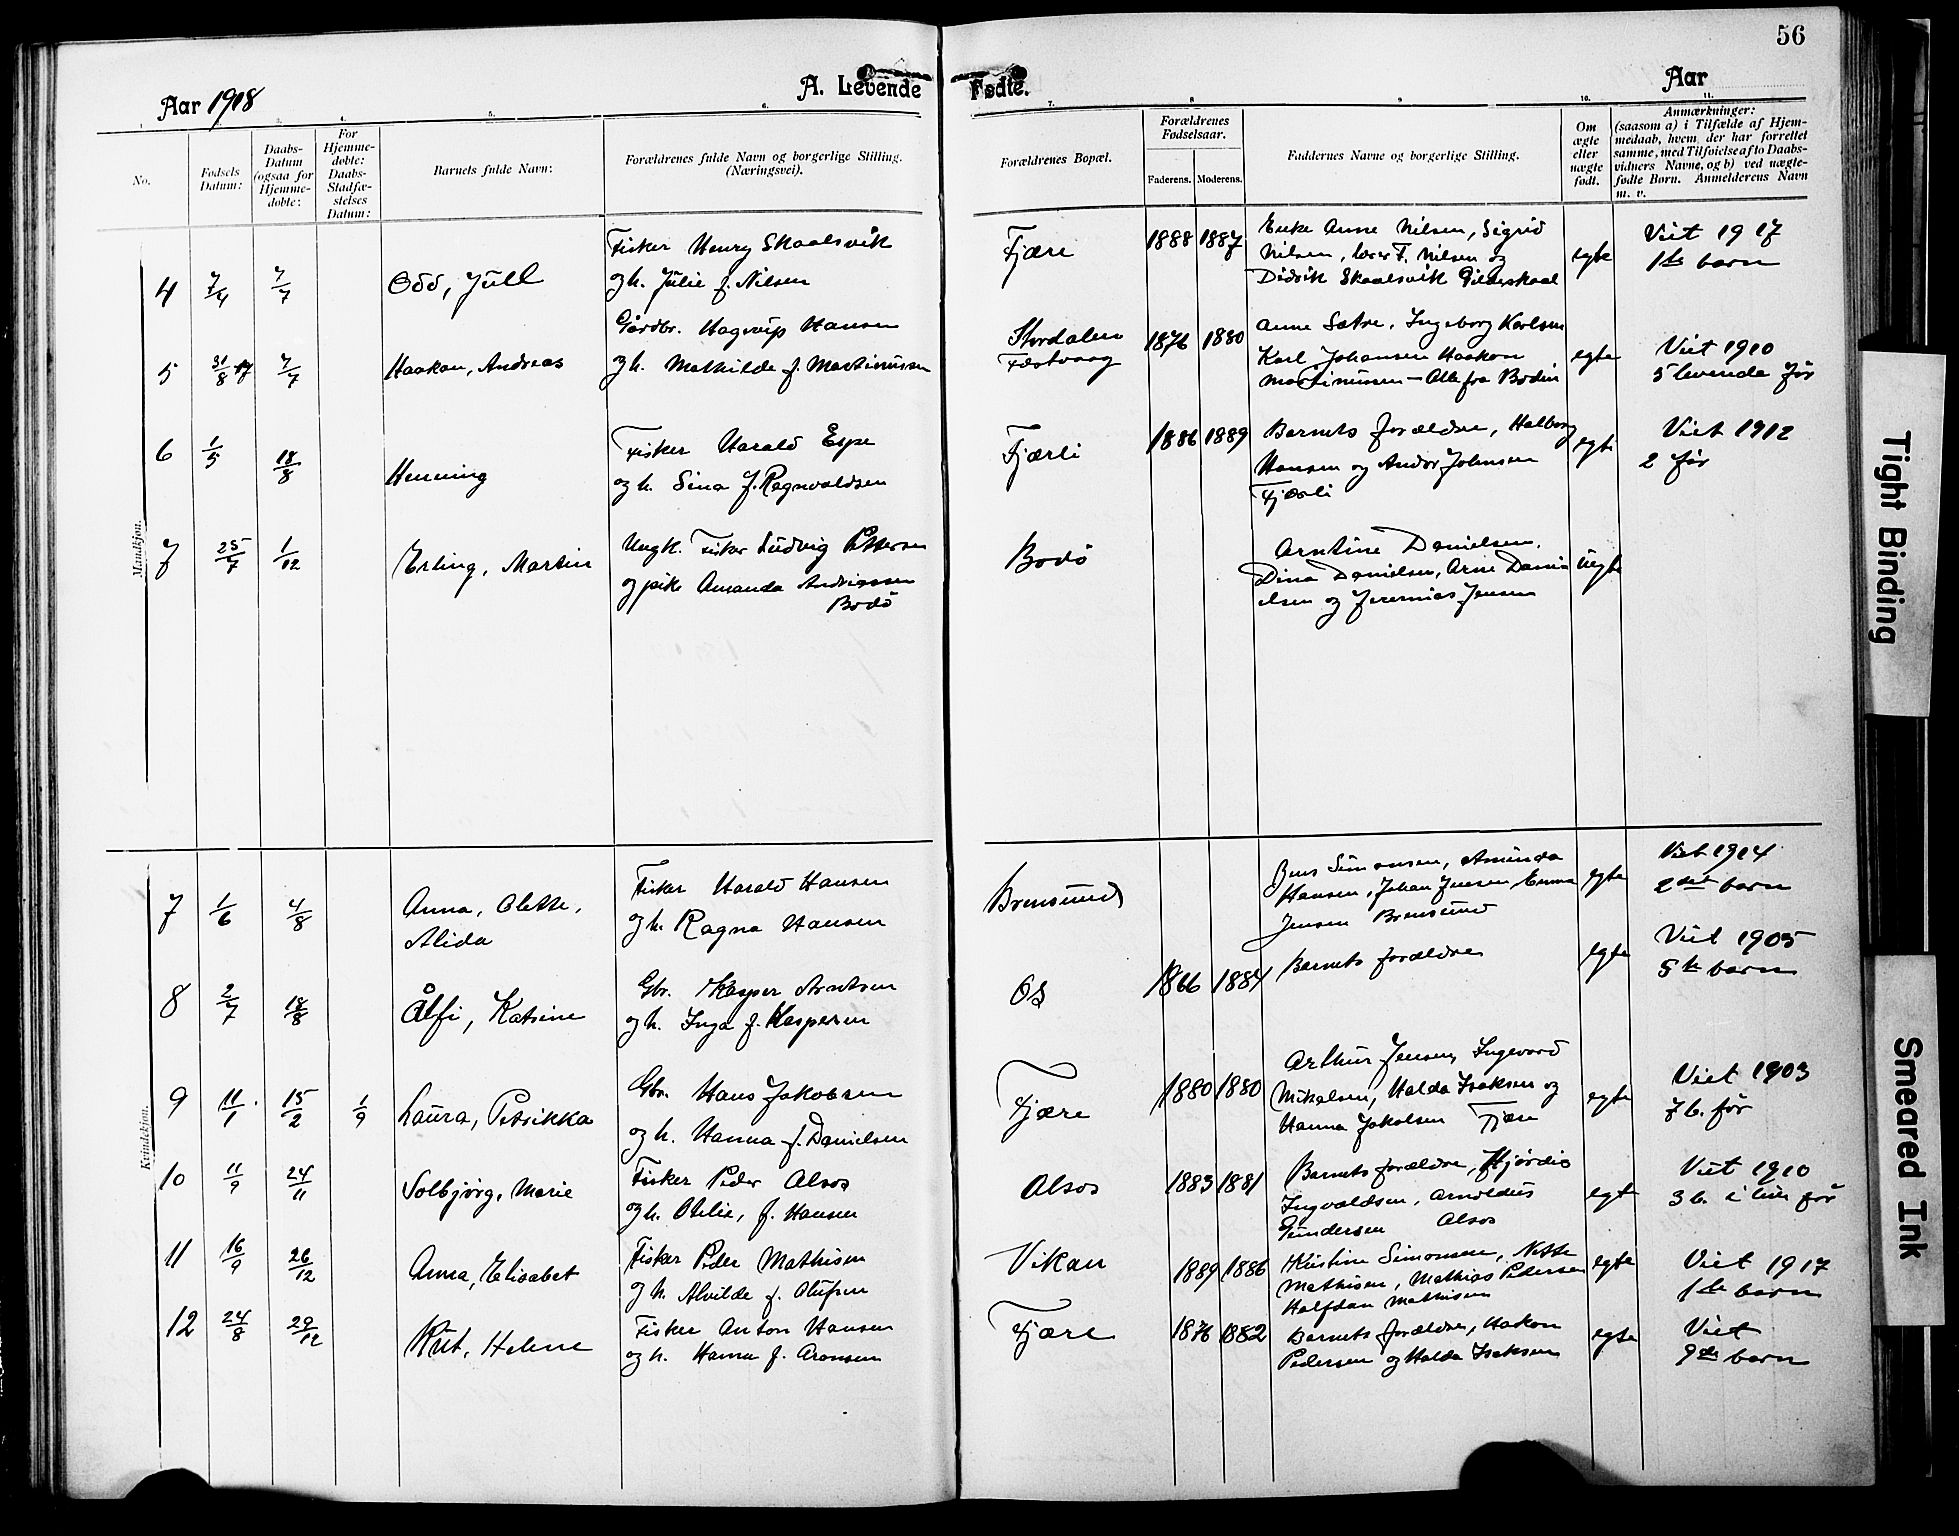 56
Aar 1918
A. Levende Fødte.
Aar
No.
Fødsels Datum:
Daabs-Datum (ogsaa for Hjemmedøbte:
For Hjemmedøbte: Daabs-Stadfæstelses Datum:
Barnets fulde Navn:
Forældrenes fulde Navn og borgerlige Stilling. (Næringsvei).
Forældrenes Bopæl.
Forældrenes Fødselsaar.
Faderens. Moderens.
Faddernes Navne og borgerlige Stilling.
Om ægte eller uægte født.
Anmærkninger:
(saasom a) i Tilfælde af Hjem-
medaab, hvem der har forrettet
samme, med Tilføielse af to Daabs-
vidners Navne, og b) ved uægte-
fødte Børn. Anmelderens Navn
m. v.
Mandkjøn.
4 7/4 7/7 Odd, Jull
Fisker Henry Skaalsvik
og h. Julie f. Nilsen
Fjære 1888 1887
Enke Anne Nilsen, Sigrid
Nilsen, lærer F. Nilsen og
Didrik Skaalsvik Gildeskaal
egte
Viet 1917
1ste barn
5 31/8 17 7/7 Haakon, Andreas
Gårdbr. Hagerup Hansen
og h. Mathilde f. Martinussen
Stordalen
Festvaag
1876 1880
Anne Sætre, Ingeborg Karlsen
Karl Johansen Haakon
Martinussen - Alle fra Bodin
egte
Viet 1910
5 levende før
6 1/5 18/8 Henning
Fisker Harald Espe
og h. Sina f. Ragnvaldsen
Fjærli 1886 1889
Barnets forældre, Halborg
Hansen og Andor Johnsen
Fjærli
egte
Viet 1912
2 før
7 25/7 1/12 Erling, Martin
Ungk. Fisker Ludvig Pettersen
og pike Amanda Andreassen
Bodø
Bodø
Arntine Danielsen,
Dina Danielsen, Arne Dani-
elsen og Jeremias Jensen
uegte
Kvindekjøn.
7 1/6 4/8 Anna, Olette,
Alida
Fisker Harald Hansen
og h. Ragna Hansen
Brensund
Jens Simonsen, Aminda
Hansen, Johan Jensen Emma
Jensen Brensund
egte
Viet 1914
2det barn
8 2/7 18/8 Ålfi, Katrine
Gbr. Kasper Arntsen
og h. Inga f. Kaspersen
Os 1866 1884
Barnets forældre
egte
Viet 1905
5te barn
9 11/1 15/2 1/9 Laura, Petrikka
Gbr. Hans Jakobsen
og h. Hanna f. Danielsen
Fjære 1880 1880
Arthur Jensen, Ingevard
Mikalsen, Halda Isaksen og
Hanna Jakobsen Fjære
egte
Viet 1903
7 b. før
10 11/9 24/11 Solbjørg, Marie
Fisker Peder Alsos
og h. Otelie, f. Hansen
Alsos 1883 1881
Barnets forældre, Hjørdis
Ingvaldsen, Arnoldus
Gundersen Alsos
egte
Viet 1910
3 b. i live før
11 16/9 26/12 Anna, Elisabet
Fisker Peder Mathisen
og h. Alvilde f. Olufsen
Vikan 1889 1886
Kristine Simonsen, Nette
Mathisen, Mathias Pedersen
Halfdan Mathisen
egte
Viet 1917
1ste barn
12 24/8 29/12 Rut, Helene
Fisker Anton Hansen
og h. Hanna f. Aronsen
Fjære 1876 1882
Barnets forældre, Hakon
Pedersen og Halda Isaksen
egte
Viet
9de barn
Tight Binding
Smeared Ink